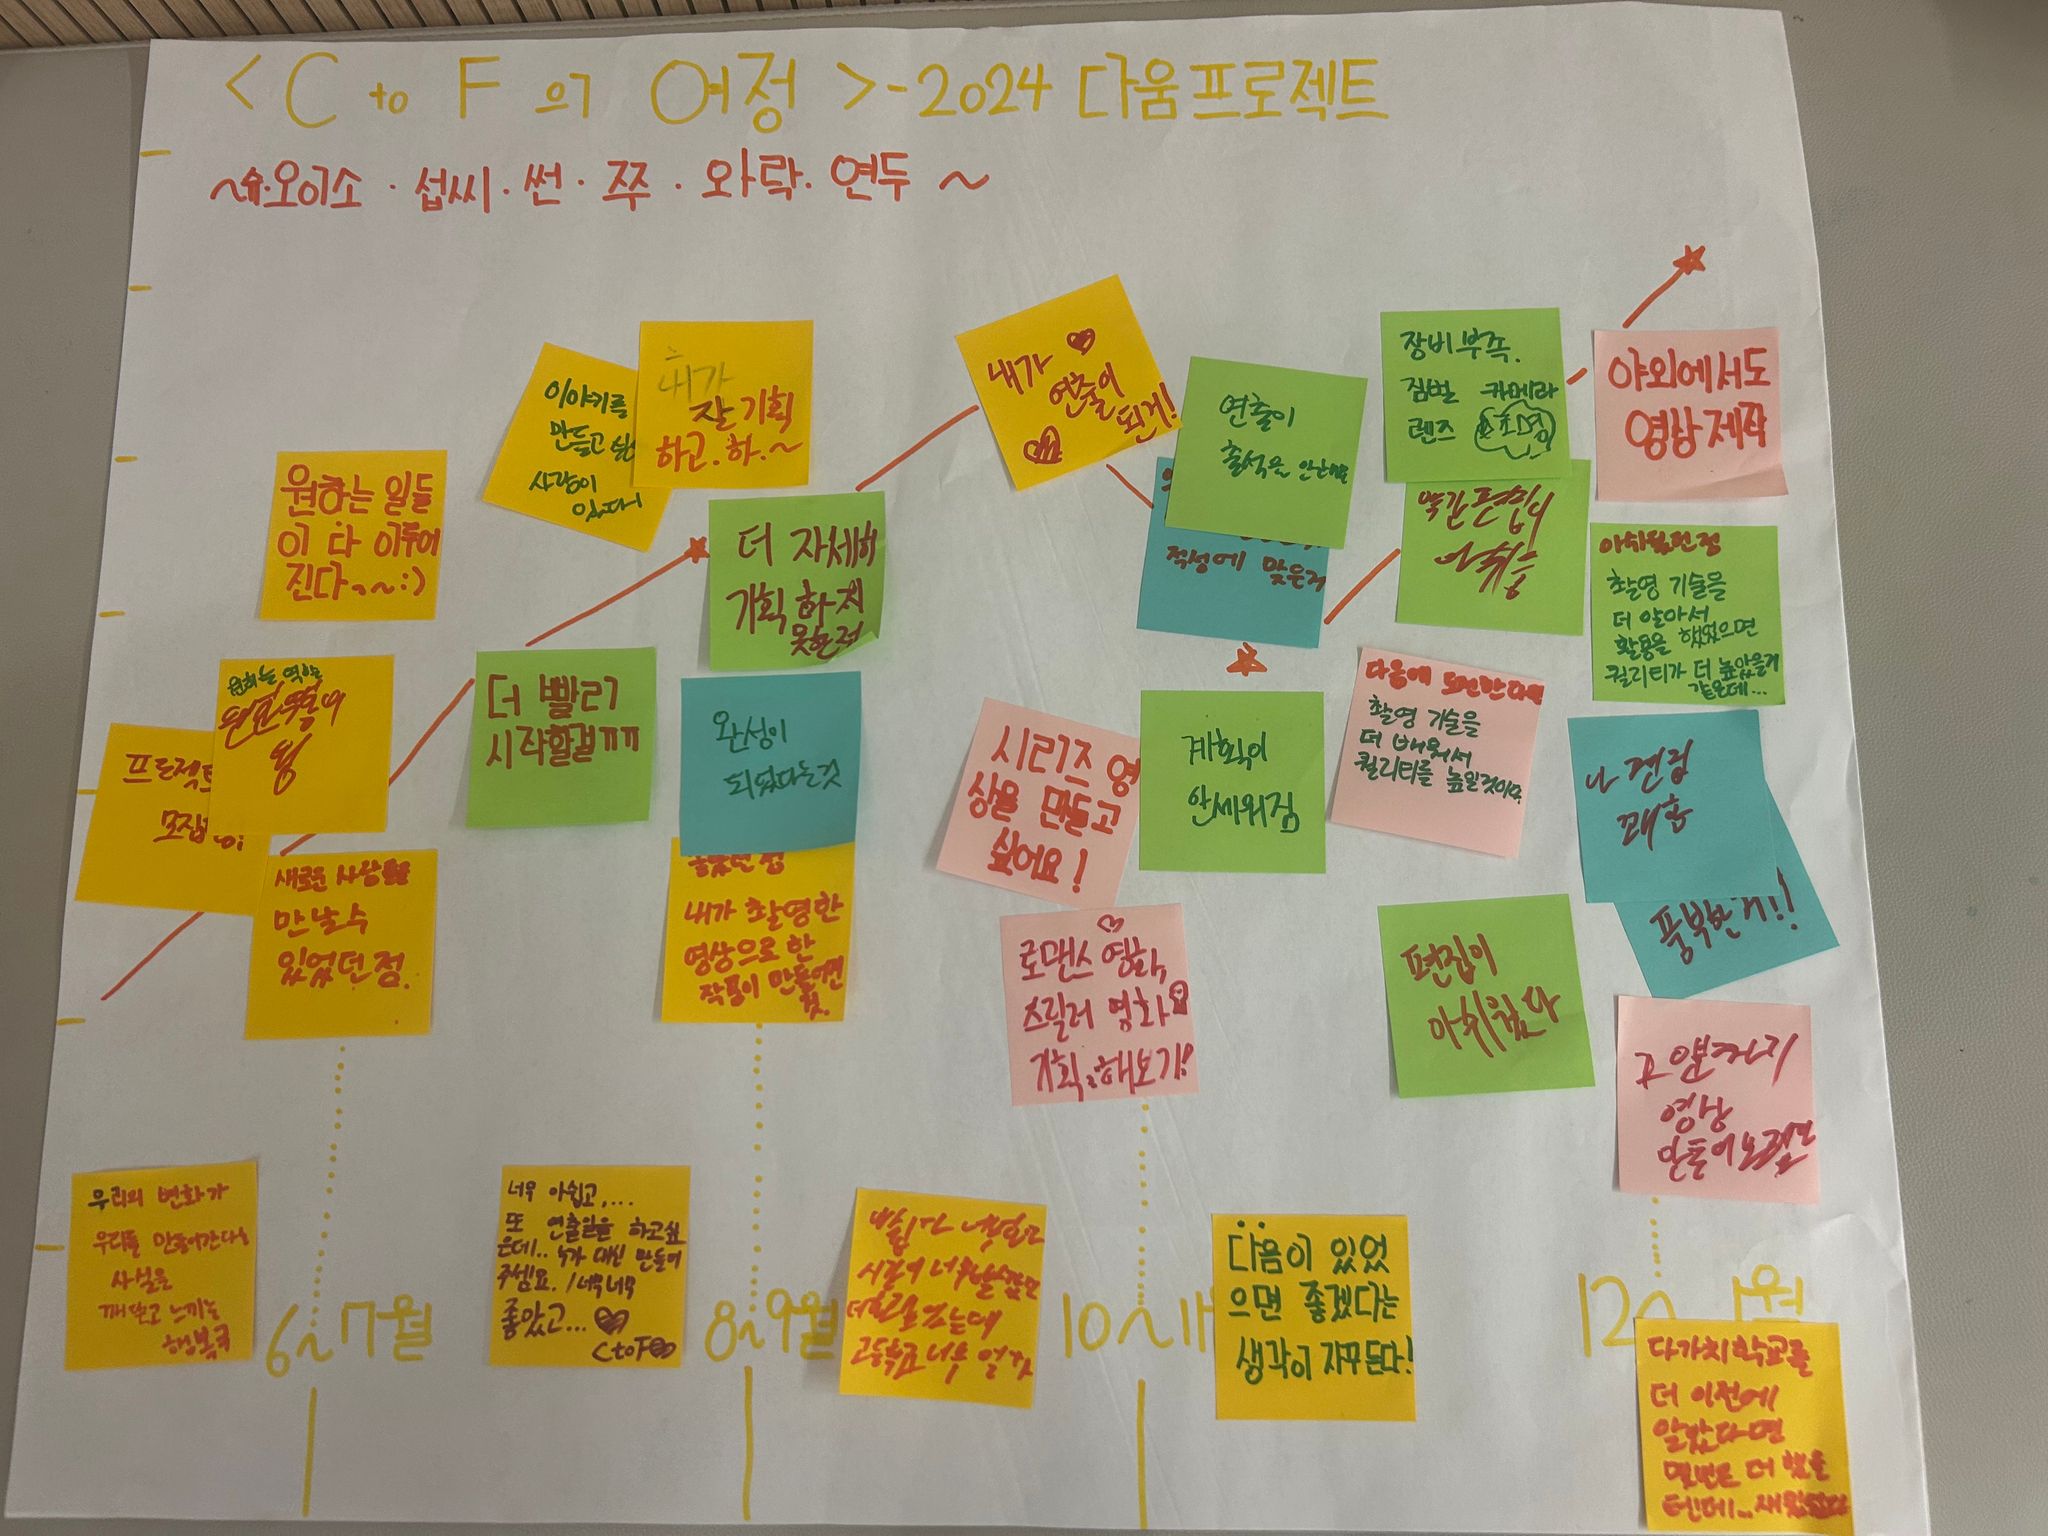 <C to F의 여정>-2024 다움프로젝트
~슈·오이소·섭씨·썬·쭈·와락·연두~
이야기를
만들고
사람이
있다니
내가
잘 기획
하고.하.~
내가
연출이
된거!
연출이
출석을 안한
장비부족.
짐벌 카메라
렌즈 조명
야외에서도
영상제작
원하는 일들
이 다 이루어
진다~~:)
더 자세히
기획하지
못한점
적성에 맞은거
편집이
아쉬움
아쉬웠던점
촬영 기술을
더 알아서
활용을 했었으면
퀄리티가 더 높았을거
같은데...
프로젝트
원하는 역할
더 빨리
시작할걸ㄲㄲ
완성이
되었다는것
내가 촬영한
영상으로 한
작품이 만들어진
것.
시리즈 영
상을 만들고
싶어요!
계획이
안세워짐
다음에 도전한다면
촬영 기술을
더 배워서
퀄리티를 높일것이다.
새로운 사람들을
만날수
있었던 점.
로맨스 영화,
스릴러 영화
기획.해보기!
편집이
아쉬웠다
풍부한거!!
영상
우리의 변화가
우리를 만들어간다는
사실을
깨닫고 느끼는
행복
너무 아쉽고,...
또 연출일을 하고싶
은데.. 누가 대신 만들어
주셈요. /너무너무
좋았고...
CtoF
다음이 있었
으면 좋겠다는
생각이 자꾸든다!
다가치학교를
더 이전에
알았다면
몇번은 더 했을
텐데...
6~7월
8~9월
10~11
12~1월